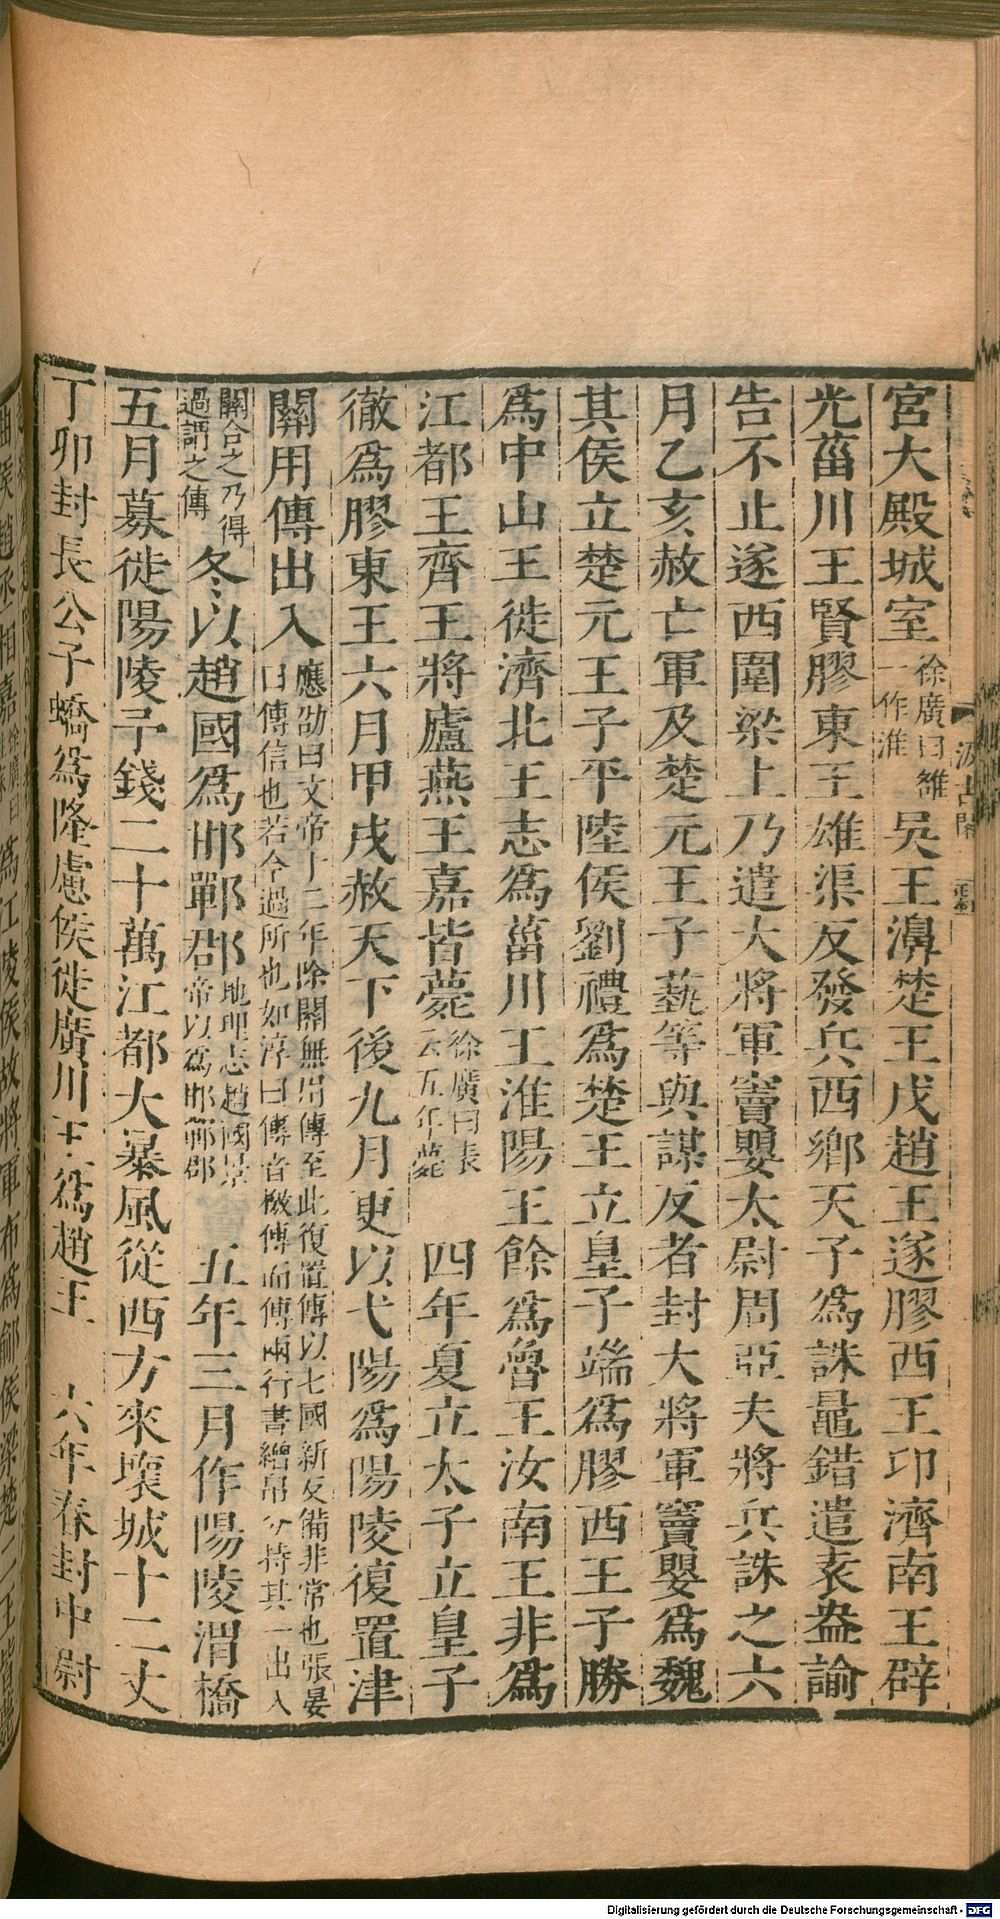 宮大殿城室徐廣曰雒一作淮吳王濞楚王戊趙王遂膠西王卬濟南王辟
光菑川王賢膠東王雄渠反發兵西鄉天子爲誅鼂錯遣袁盎諭
告不止遂西圍梁上乃遣大將軍竇嬰太尉周亞夫將兵誅之六
月乙亥赦亡軍及楚元王子蓺等與謀反者封大將軍竇嬰爲魏
其侯立楚元王子平陸侯劉禮爲楚王立皇子端爲膠西王子勝
爲中山王徙濟北王志爲菑川王淮陽王餘爲魯王汝南王非爲
江都王齊王將廬燕王嘉皆薨徐廣曰表云五年薨 四年夏立太子立皇子
徹爲膠東王六月甲戌赦天下後九月更以弋陽爲陽陵復置津
關用傳出入應劭曰文帝十二年除關無用傳至此復置傳以七國新反備非常也張晏曰傳信也若今過所也如淳曰傳音檄傳而傳兩行書繒帛分持其一出入
關合之乃得過謂之傳冬以趙國爲邯鄲郡地理志趙國景帝以爲邯鄲郡 五年三月作陽陵渭橋
五月募徙陽陵予錢二十萬江都大暴風從西方來壞城十二丈
丁卯封長公子蟜爲隆慮侯徙廣川王爲趙王 六年春封中尉
汲古閣
曲侯趙丞相嘉 爲江陵侯故將軍布爲鄃侯梁楚二王皆薨
Digitalisierung gefördert durch die Deutsche Forschungsgemeinschaft - DFG